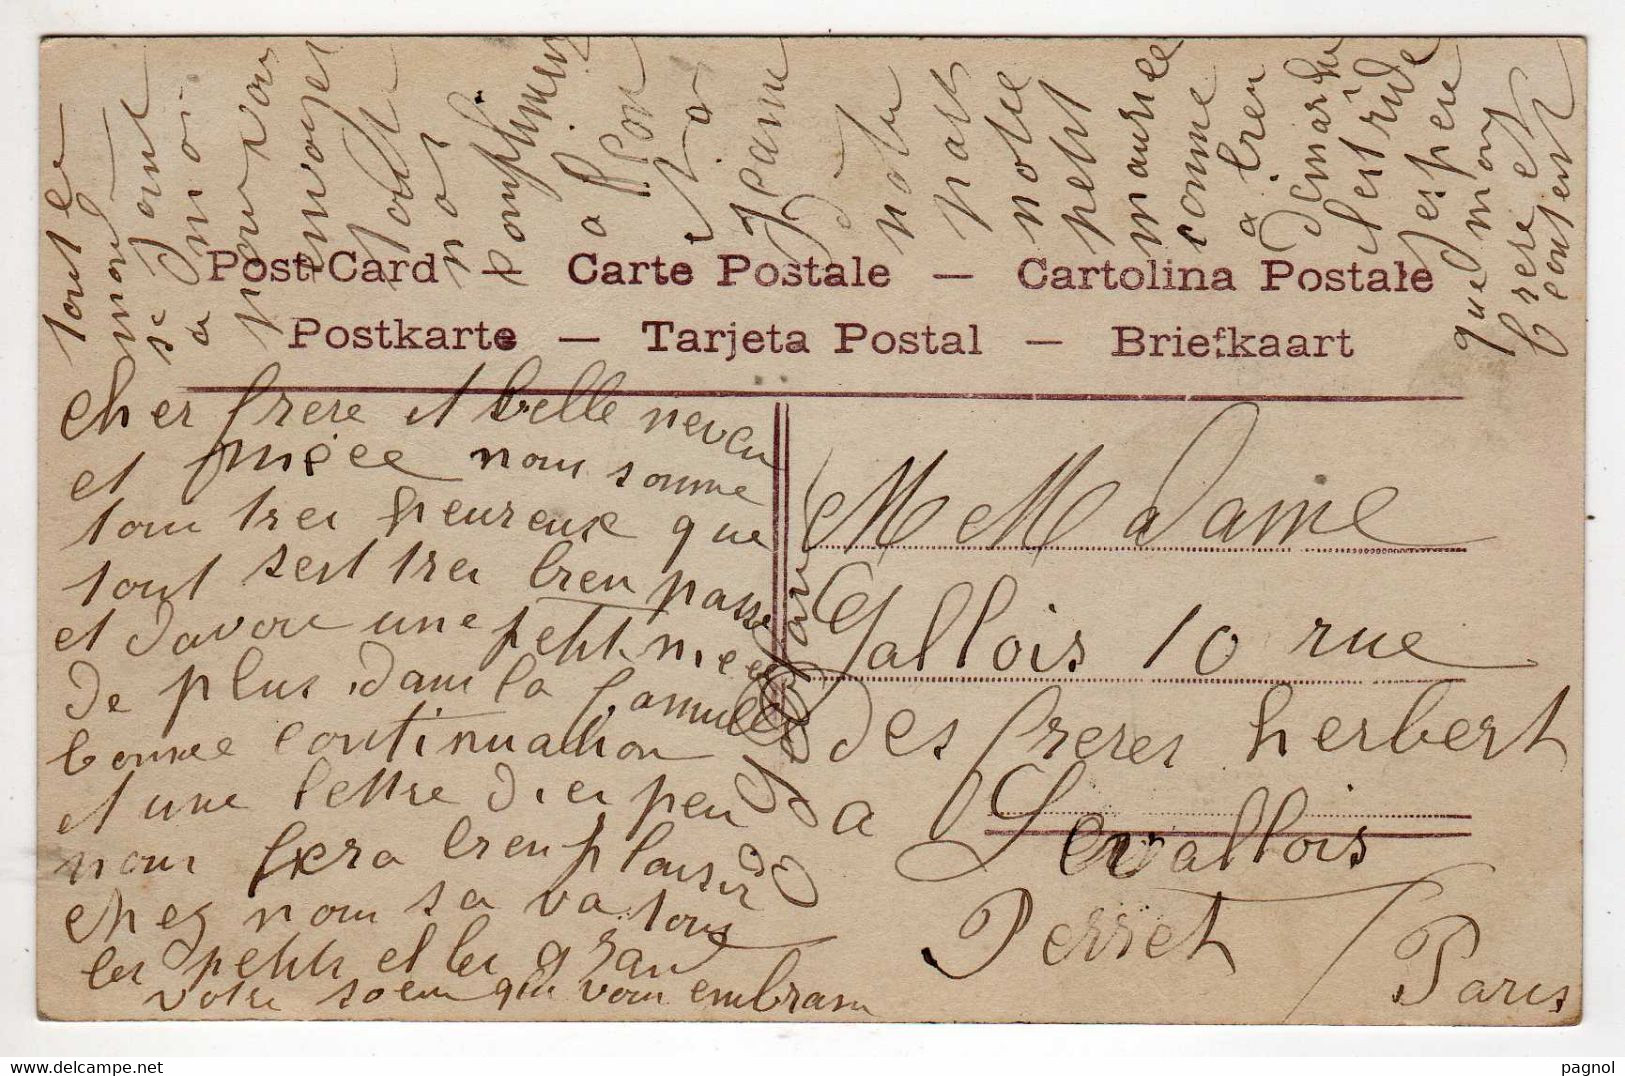 Post-Card — Carte Postale — Cartolina Postale
Postkarte — Tarjeta Postal — Briefkaart
cher frere et belle neveu
et niéce nous somme
tous tres heureuse que
tout sest tres bien passe
et davoir une petit niece
de plus dans la famille
bonne continuation
et une lettre dici peu
nous fera bien plaisir
chez nous sa va tous
les petits et les gran
votre soeur qui vous embrasse
M e Madame
Gallois 10 rue
des freres herbert
a Levallois
Perret / Paris
tout le
monde
se joint
a moi
pour vous
envoyer
toute
nos
compliments
a
Jeanne
notre
petit
maurice
comme
a bien
il est rude
jespere
que mon
frere est
content
pagnol